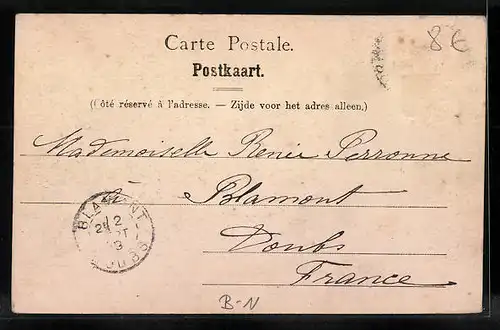 Carte Postale.
8€
Postkaart.
(Côté réservé à l'adresse. — Zijde voor het adres alleen.)
Mademoiselle Renée Perronne
à Blamont
BLAMONT
2
DOUBS
Doubs
France
B-N